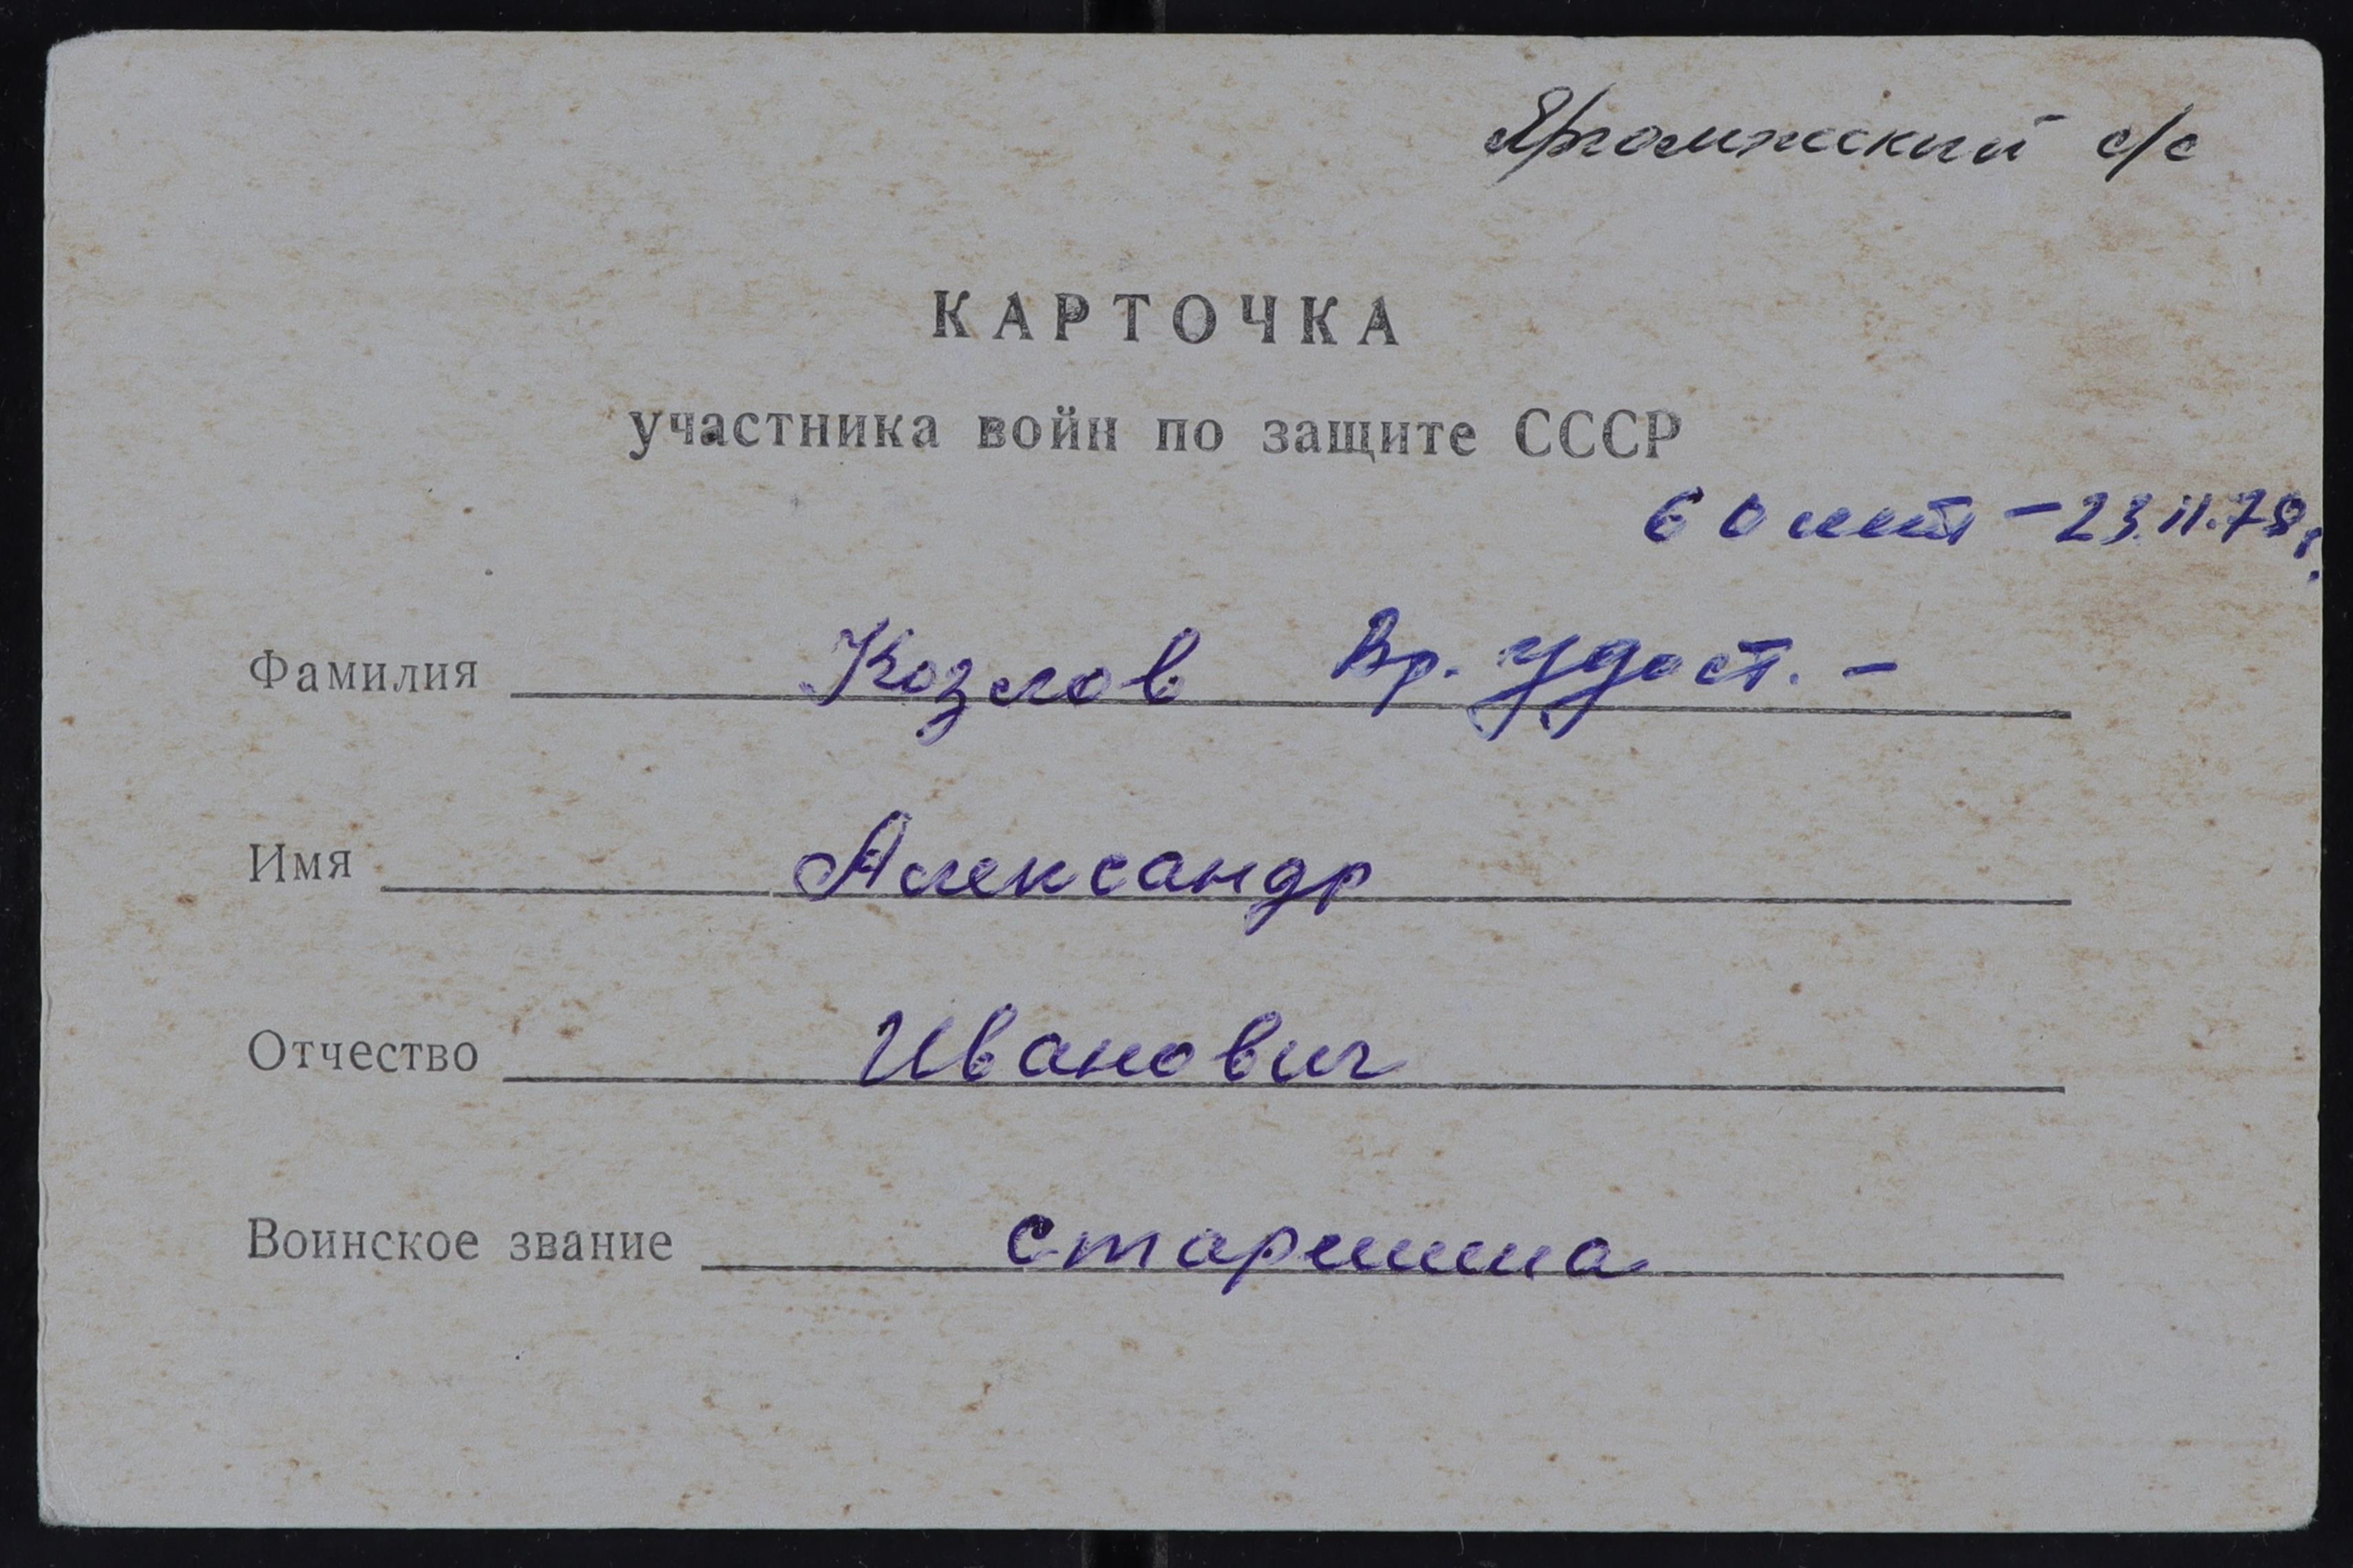 Ягомжский с/с
КАРТОЧКА
участника войн по защите СССР
60 лет - 23.11.78 г.
Фамилия Козлов Вр. Удост. -
Имя Александр
Отчество Иванович
Воинское звание старшина